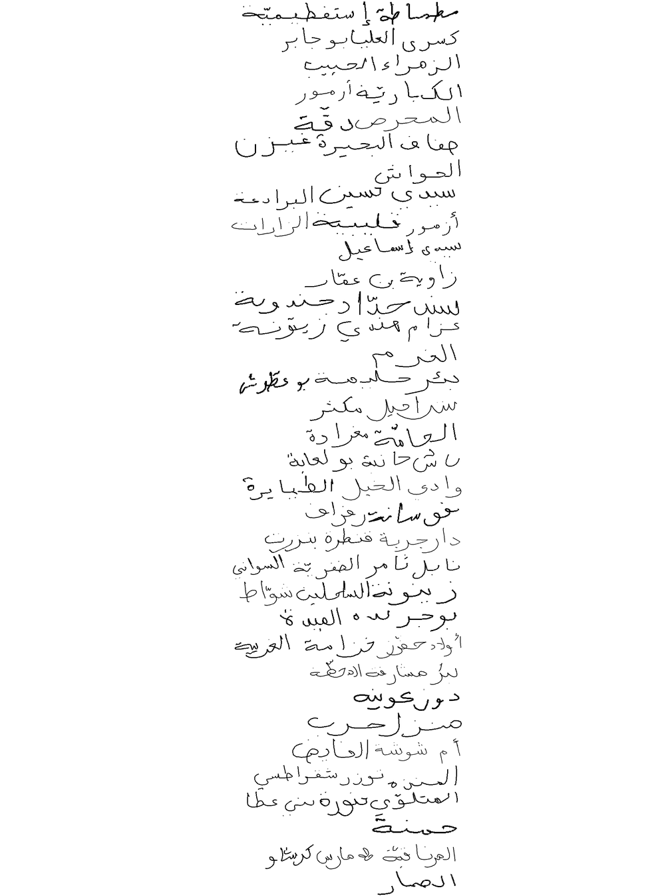 مطماطة إستفطيميّة
كسرى العليا بوجابر
الزهراء الحبيب
الكبّاريّة أزمور
المحرص دقّة
ضفاف البحيرة غيزن
الحواش
سيدي حسين البرادعة
أزمور قليبية الزارات
سيدي إسماعيل
زاوية بن عمّار
سند حدّاد جندوبة
عزام هندي زيتونة
الغرم
بئر حليمة بوعطّوش
سراحيل مكثر
الحامّة مغرادة
باش حانبة بولعابة
وادي الخيل الطبايرة
دار جربة قنطرة بنزرت
نابل ثامر الضفريّة السواني
زيتونة الساحلين شوّاط
أولاد حفوز خزامة الغربية
بئر مشارقة المحطّة
دوز عوينة
منزل حرب
أم شوشة الفايض
المنزه توزر شقراطسي
المتلوّي تنورة بني عطا
حمنة
العرناقيّة مارس كرستاو
الصمار